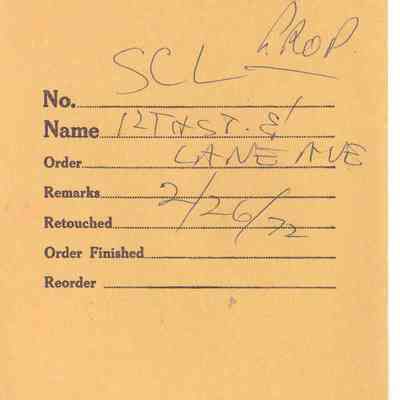 SCL PROP.
No.
Name 12TH ST. &
Order LANE AVE
Remarks 2/26/72
Retouched
Order Finished
Reorder